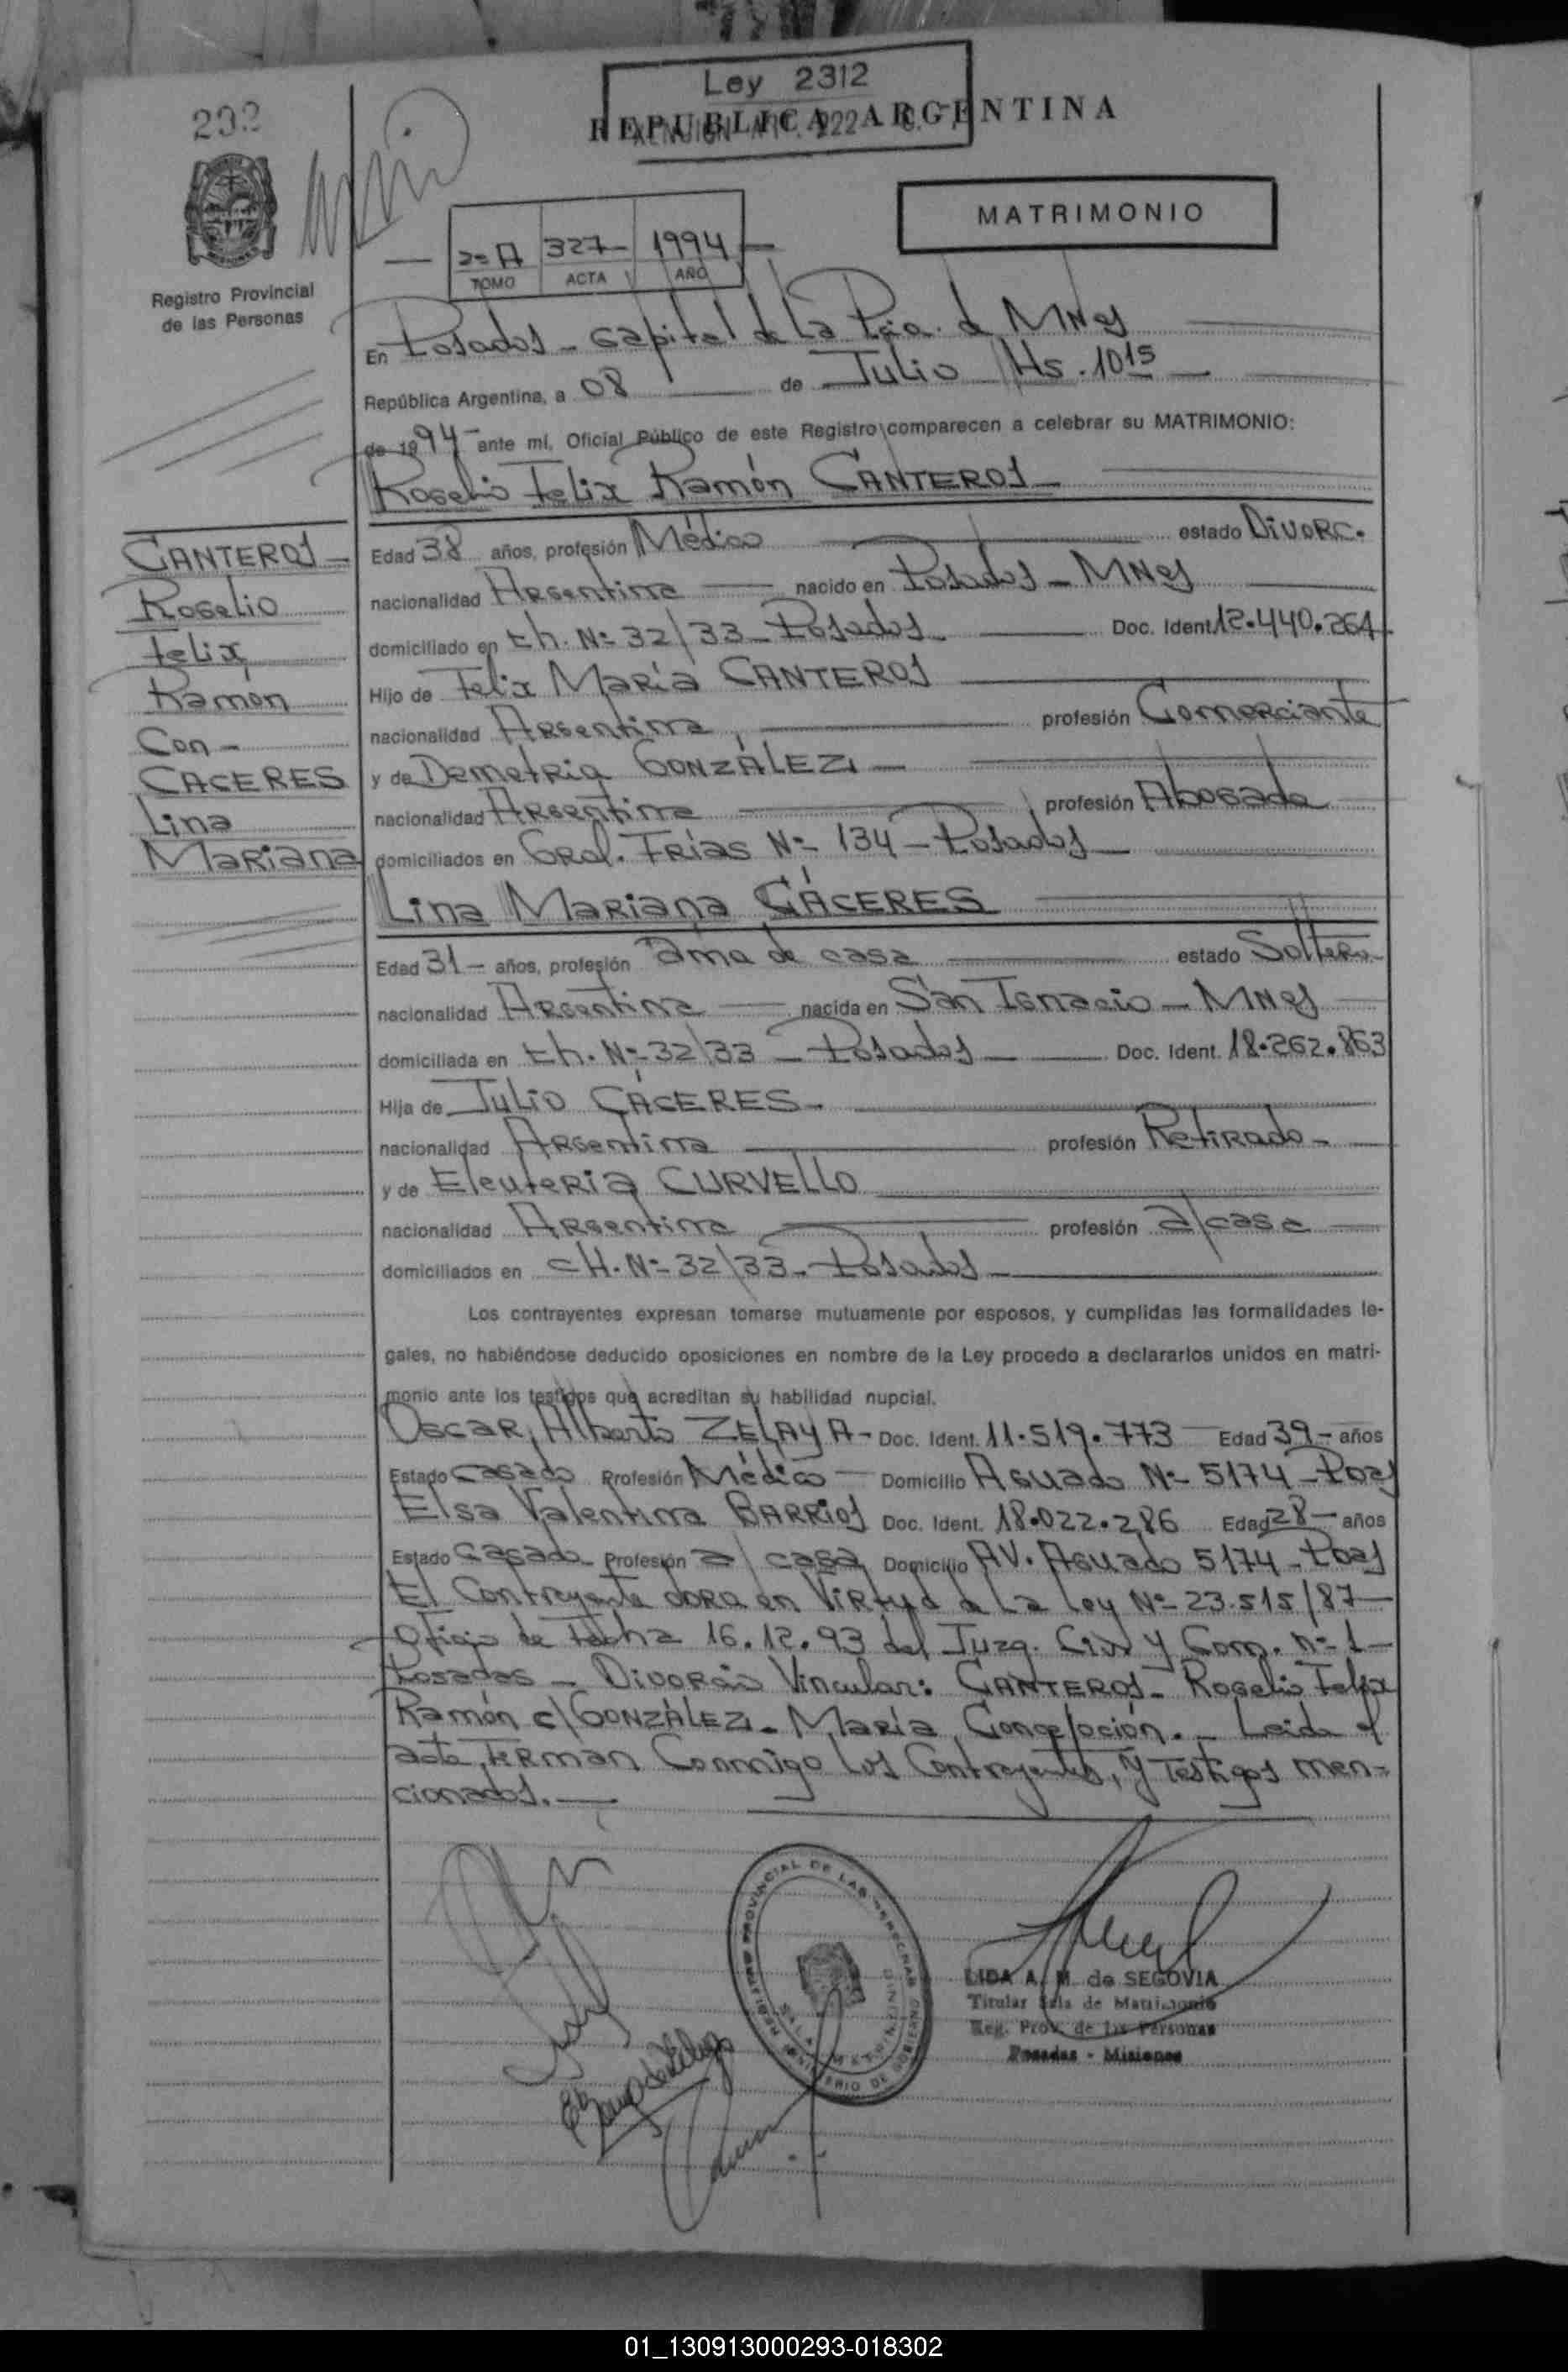 Ley 2312
REPUBLICA ARGENTINA
232
MATRIMONIO
2º A 327- 1994
TOMO ACTA AÑO
Registro Provincial
de las Personas
En Posadas - Capital de La Pcia. de MNes
República Argentina, a 08 de Julio Hs. 10 15
de 1994 - ante mí, Oficial Público de este Registro comparecen a celebrar su MATRIMONIO:
Rogelio Felix Ramón CANTEROS
CANTEROS
Rogelio
Felix
Ramón
Con -
CACERES
Lina
Mariana
Edad 38 años, profesión Médico estado Divorc.
nacionalidad Argentina nacido en Posadas - MNes
domiciliado en Ch. Nº 32/33 - Posadas Doc. Ident. 12.440.264
Hijo de Felix María CANTEROS
nacionalidad Argentina profesión Comerciante
y de Demetria GONZÁLEZ
nacionalidad Argentina profesión Abogada
domiciliados en Gral. Frías Nº 134 - Posadas
Lina Mariana CÁCERES
Edad 31 - años, profesión ama de casa estado Soltera
nacionalidad Argentina nacida en San Ignacio - MNes
domiciliada en Ch. Nº 32/33 - Posadas Doc. Ident. 18.262.863
Hija de Julio CÁCERES -
nacionalidad Argentina profesión Retirado -
y de Eleuteria CURVELLO
nacionalidad Argentina profesión a/casa
domiciliados en CH. Nº 32/33 - Posadas
Los contrayentes expresan tomarse mutuamente por esposos, y cumplidas las formalidades le-
gales, no habiéndose deducido oposiciones en nombre de la Ley procedo a declararlos unidos en matri-
monio ante los testigos que acreditan su habilidad nupcial.
Oscar Alberto ZELAYA - Doc. Ident. 11.519.773 Edad 39 - años
Estado Casado Profesión Médico - Domicilio Aguado Nº 5174 - Pdas
Elsa Valentina BARRIOS Doc. Ident. 18.022.286 Edad 28 - años
Estado Casado Profesión a/casa Domicilio AV. Aguado 5174 - Pdas
El Contrayente obra en Virtud de La Ley Nº 23.515/87
Oficio de Fecha 16.12.93 del Juzg. Civ y Com. nº 1 -
Posadas - Divorcio Vincular: CANTEROS - Rogelio Felix
Ramón c/GONZÁLEZ - María Concepción. - Leída el
acta, Firman Conmigo Los Contrayentes, y Testigos men-
cionados.
LIDA A. M. de SEGOVIA
Titular Sala de Matrimonio
Reg. Prov. de las Personas
Posadas - Misiones
01_130913000293-018302